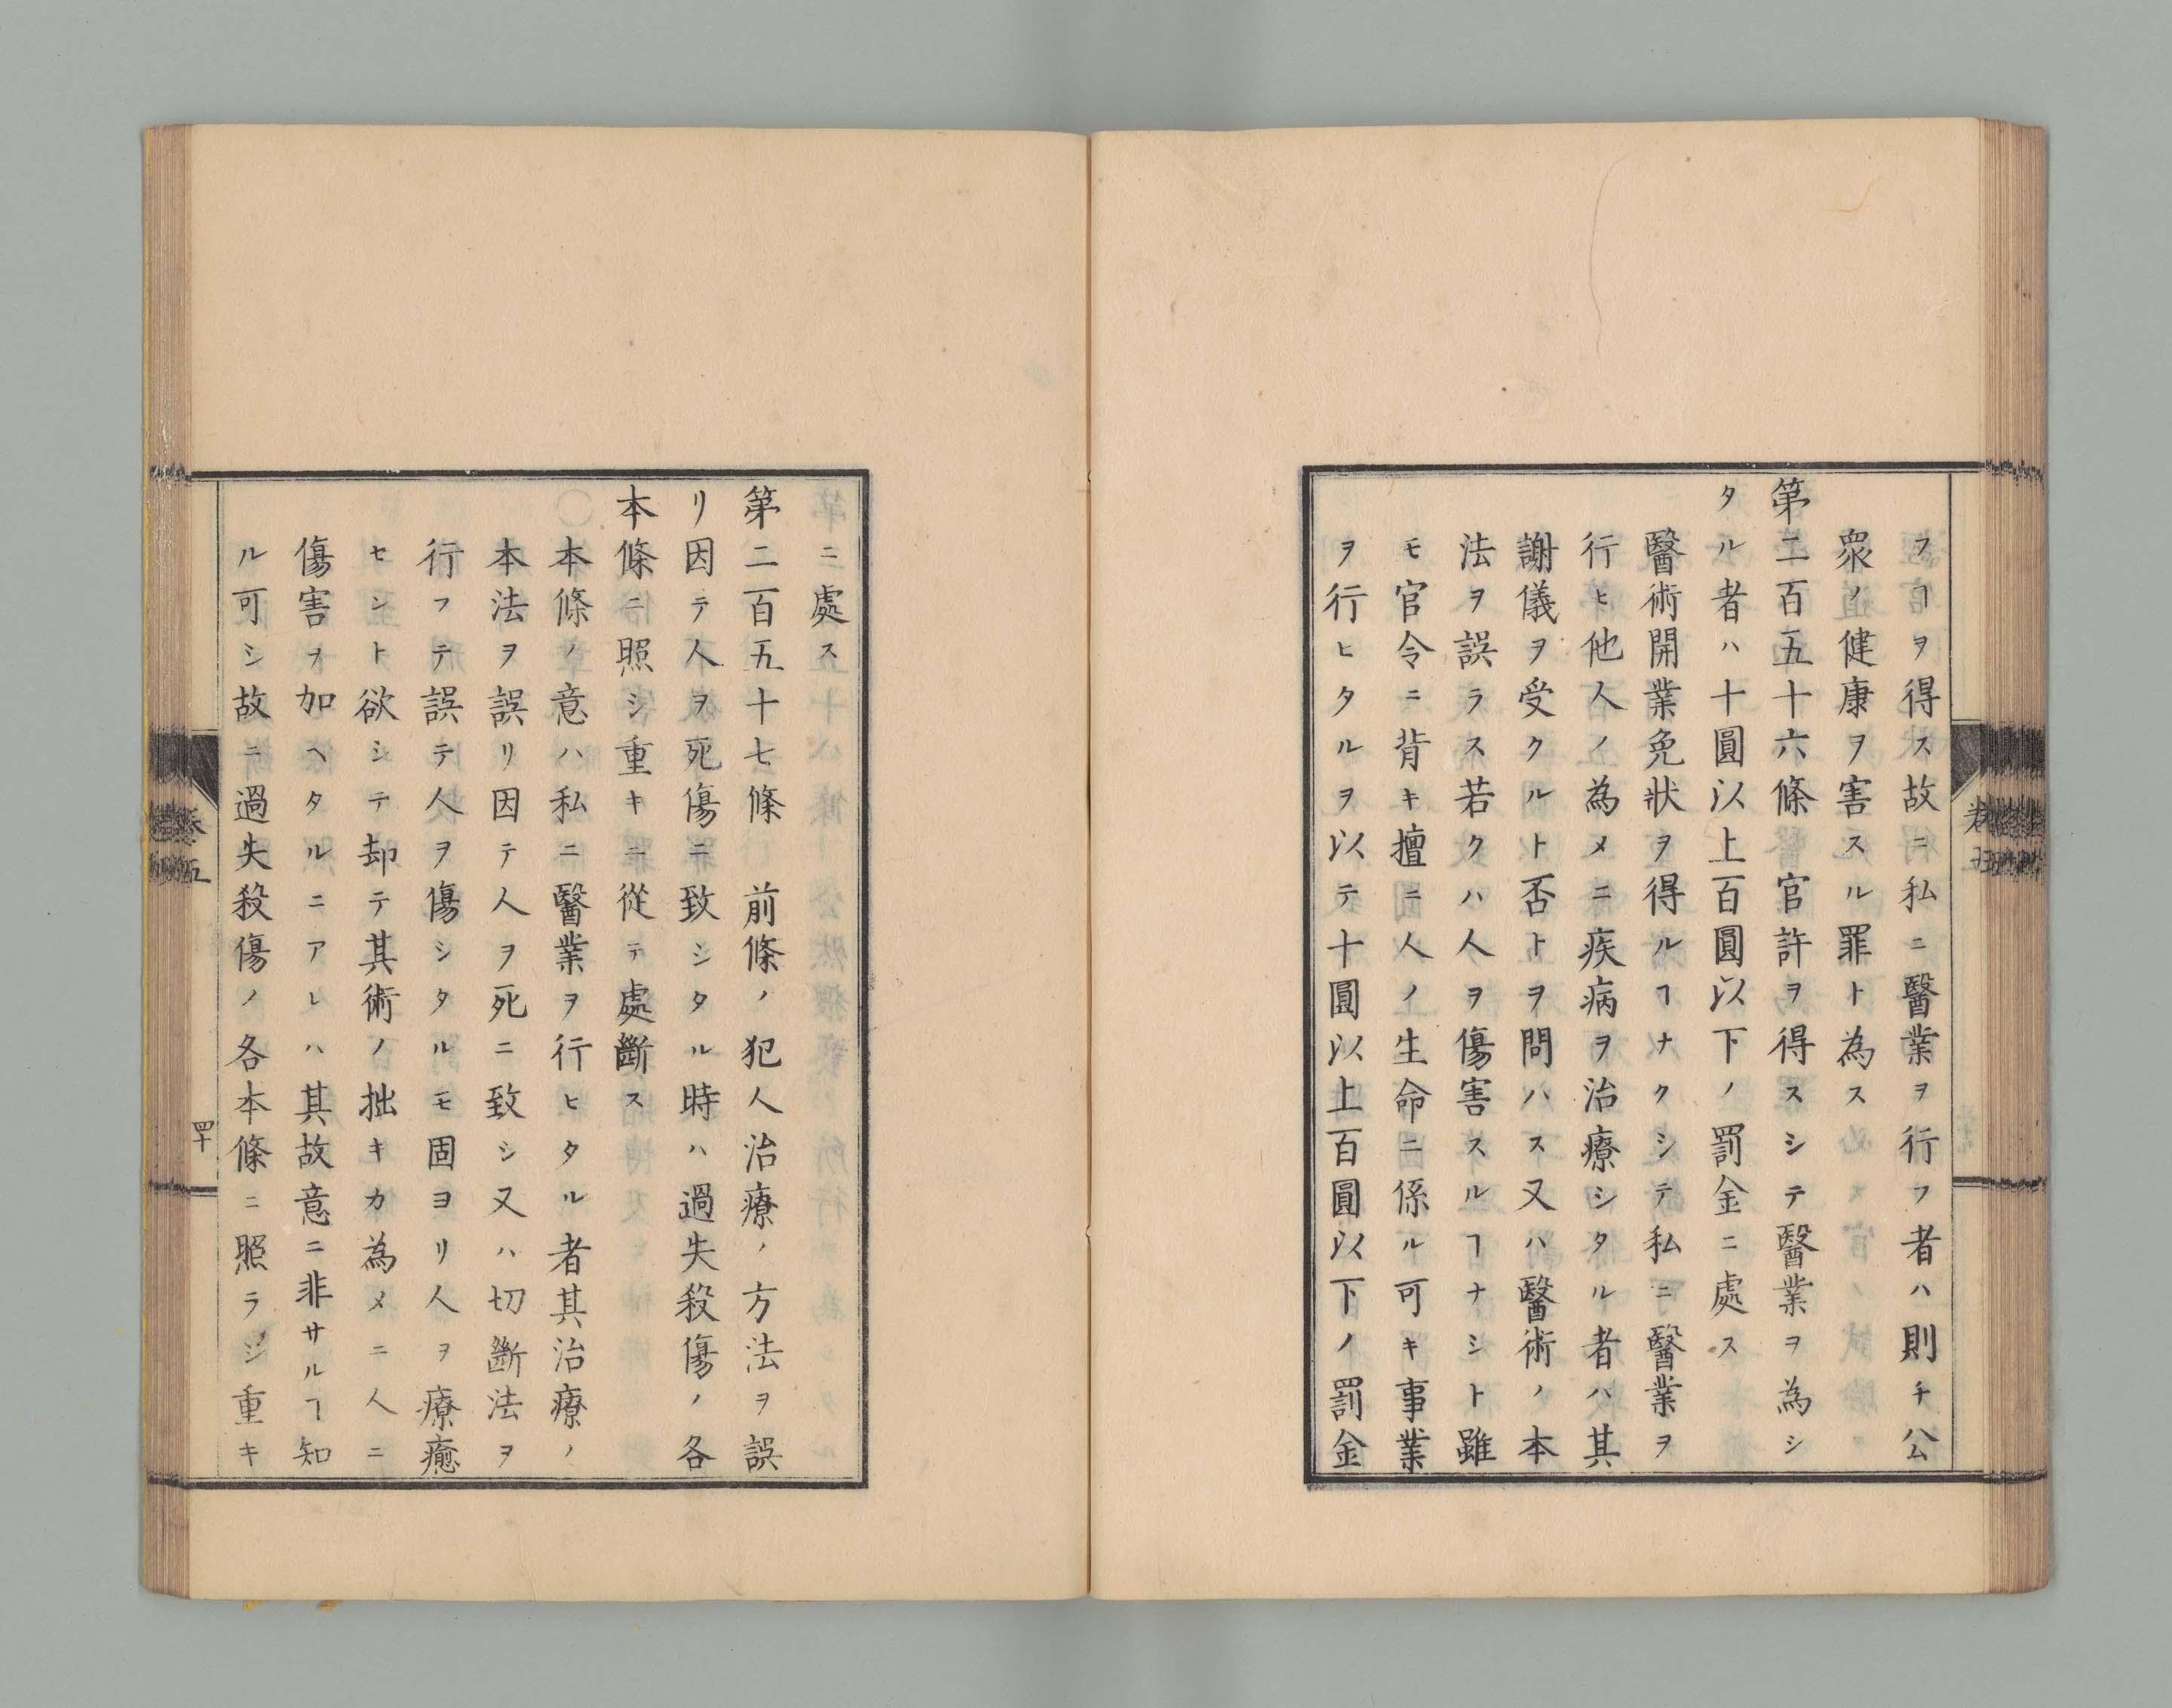 フヿヲ得ス故ニ私ニ醫業ヲ行フ者ハ則チ公
衆ノ健康ヲ害スル罪ト為ス
第二百五十六條官許ヲ得スシテ醫業ヲ為シ
タル者ハ十圓以上百圓以下ノ罰金ニ處ス
醫術開業免狀ヲ得ルヿナクシテ私ニ醫業ヲ
行ヒ他人ノ為メニ疾病ヲ治療シタル者ハ其
謝儀ヲ受クルト否トヲ問ハス又ハ醫術ノ本
法ヲ誤ラス若クハ人ヲ傷害スルヿナシト雖
モ官令ニ背キ擅ニ人ノ生命ニ係ル可キ事業
ヲ行ヒタルヲ以テ十圓以上百圓以下ノ罰金
ニ處ス
第二百五十七條 前條ノ犯人治療ノ方法ヲ誤
リ因テ人ヲ死傷ニ致シタル時ハ過失殺傷ノ各
本條ニ照シ重キニ從テ處斷ス
本條ノ意ハ私ニ醫業ヲ行ヒタル者其治療ノ
本法ヲ誤リ因テ人ヲ死ニ致シ又ハ切斷法ヲ
行フテ誤テ人ヲ傷シタルモ固ヨリ人ヲ療癒
セシト欲シテ却テ其術ノ拙キカ為メニ人ニ
傷害ヲ加ヘタルニアレハ其故意ニ非サルヿ知
ル可シ故ニ過失殺傷ノ各本條ニ照ラシ重キ
卷五
四十